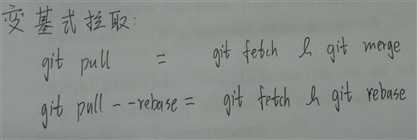 变基式拉取:
git pull = git fetch & git merge
git pull --rebase = git fetch & git rebase